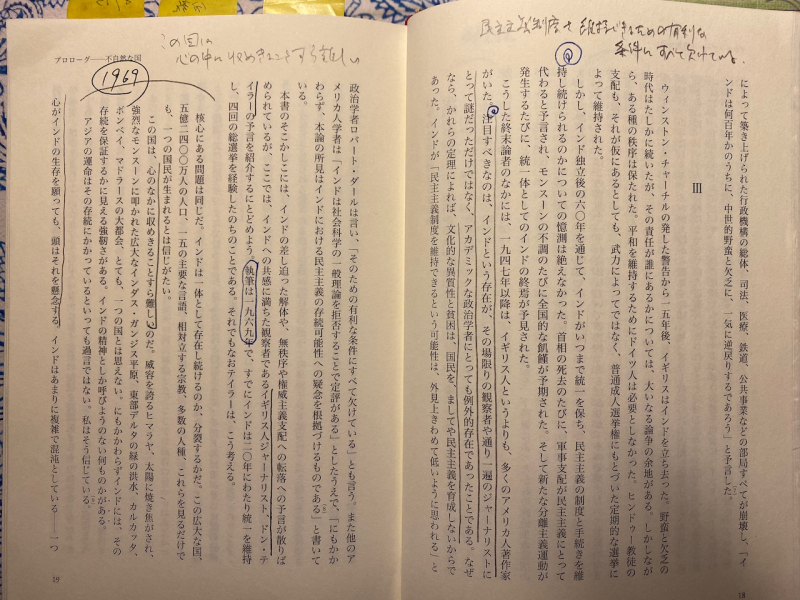 民主主義制度を維持できるための有利な
条件にすべて欠けている。
によって築き上げられた行政機構の総体、司法、医療、鉄道、公共事業などの部局すべてが崩壊し、「イ
ンドは何百年かのうちに、中世的野蛮と欠乏に、一気に逆戻りするであろう」と予言した。
III
ウィンストン・チャーチルの発した警告から一五年後、イギリスはインドを立ち去った。野蛮と欠乏の
時代はたしかに続いたが、その責任が誰にあるかについては、大いなる論争の余地がある。しかしなが
ら、ある種の秩序は保たれた。平和を維持するためにドイツ人は必要としなかった。ヒンドゥー教徒の
支配も、それが仮にあるとしても、武力によってではなく、普通成人選挙権にもとづいた定期的な選挙に
よって維持された。
しかし、インド独立後の六〇年を通じて、インドがいつまで統一を保ち、民主主義の制度と手続きを維
持し続けられるのかについての憶測は絶えなかった。首相の死去のたびに、軍事支配が民主主義にとって
代わると予言され、モンスーンの不調のたびに全国的な飢饉が予期された。そして新たな分離主義運動が
発生するたびに、統一体としてのインドの終焉が予見された。
こうした終末論者のなかには、一九四七年以降は、イギリス人というよりも、多くのアメリカ人著作家
がいた。注目すべきなのは、インドという存在が、その場限りの観察者や通り一遍のジャーナリストに
とって謎だっただけではなく、アカデミックな政治学者にとっても例外的存在であったことである。なぜ
なら、かれらの定理によれば、文化的な異質性と貧困は、国民を、ましてや民主主義を育成しないからで
あった。インドが「民主主義制度を維持できるという可能性は、外見上きわめて低いように思われる」と
18
プロローグ──不自然な国
この国は
心の中に収めきることすら難しい
1969
政治学者ロバート・ダールは言い、「そのための有利な条件にすべて欠けている」とも言う。また他のア
メリカ人学者は「インドは社会科学の一般理論を拒否することで定評がある」としたうえで、「にもかか
わらず、本論の所見はインドにおける民主主義の存続可能性への疑念を根拠づけるものである」と書いて
いる。
本書のそこかしこには、インドの差し迫った解体や、無秩序や権威主義支配への転落への予言が散りば
められているが、ここでは、インドへの共感に満ちた観察者であるイギリス人ジャーナリスト、ドン・テ
イラーの予言を紹介するにとどめよう。執筆は一九六九年で、すでにインドは二〇年にわたり統一を維持
し、四回の総選挙を経験したのちのことである。それでもなおテイラーは、こう考える。
核心にある問題は同じだ。インドは一体として存在し続けるのか、分裂するかだ。この広大な国、
五億二四〇〇万人の人口、一五の主要な言語、相対立する宗教、多数の人種、これらを見るだけで
も、一つの国民が生まれるとは信じがたい。
この国は、心のなかに収めきることすら難しいのだ。威容を誇るヒマラヤ、太陽に焼き焦がされ、
強烈なモンスーンに叩かれた広大なインダス・ガンジス平原、東部デルタの緑の洪水、カルカッタ、
ボンベイ、マドラースの大都会、とても、一つの国とは思えない。にもかかわらずインドには、その
存続を保証するかに見える強靭さがある。インドの精神としか呼びようのない何ものかがある。
アジアの運命はその存続にかかっているといっても過言ではない。私はそう信じている。
心がインドの生存を願っても、頭はそれを懸念する。インドはあまりに複雑で混沌としている──一つ
19